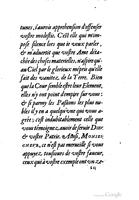 tunes, i'aurois apprehension d'offenser
vostre modestie. C'est elle qui m'im-
pose silence lors que ie veux parler,
& m'aduertit que vostre Ame déta-
chée des choses materielles, n'aspire qu'-
au Ciel par le glorieux mépris qu'elle
fait des vanitez de la Terre. Bien
que la Cour semble estre leur Element,
elles n'y ont point d'empire sur vous:
& si parmy les Passions les plus no-
bles il y en a quelqu'vne qui vous a-
grée: c'est indubitablement celle que
vous témoignez, aimant de seruir Dieu
& vostre Patrie. Aussi, MONSEI-
GNEVR, ce n'est pas merueille si vous
appuyez, tousiours de vostre faueur,
ceux qui à vostre exemple ont vn ze-